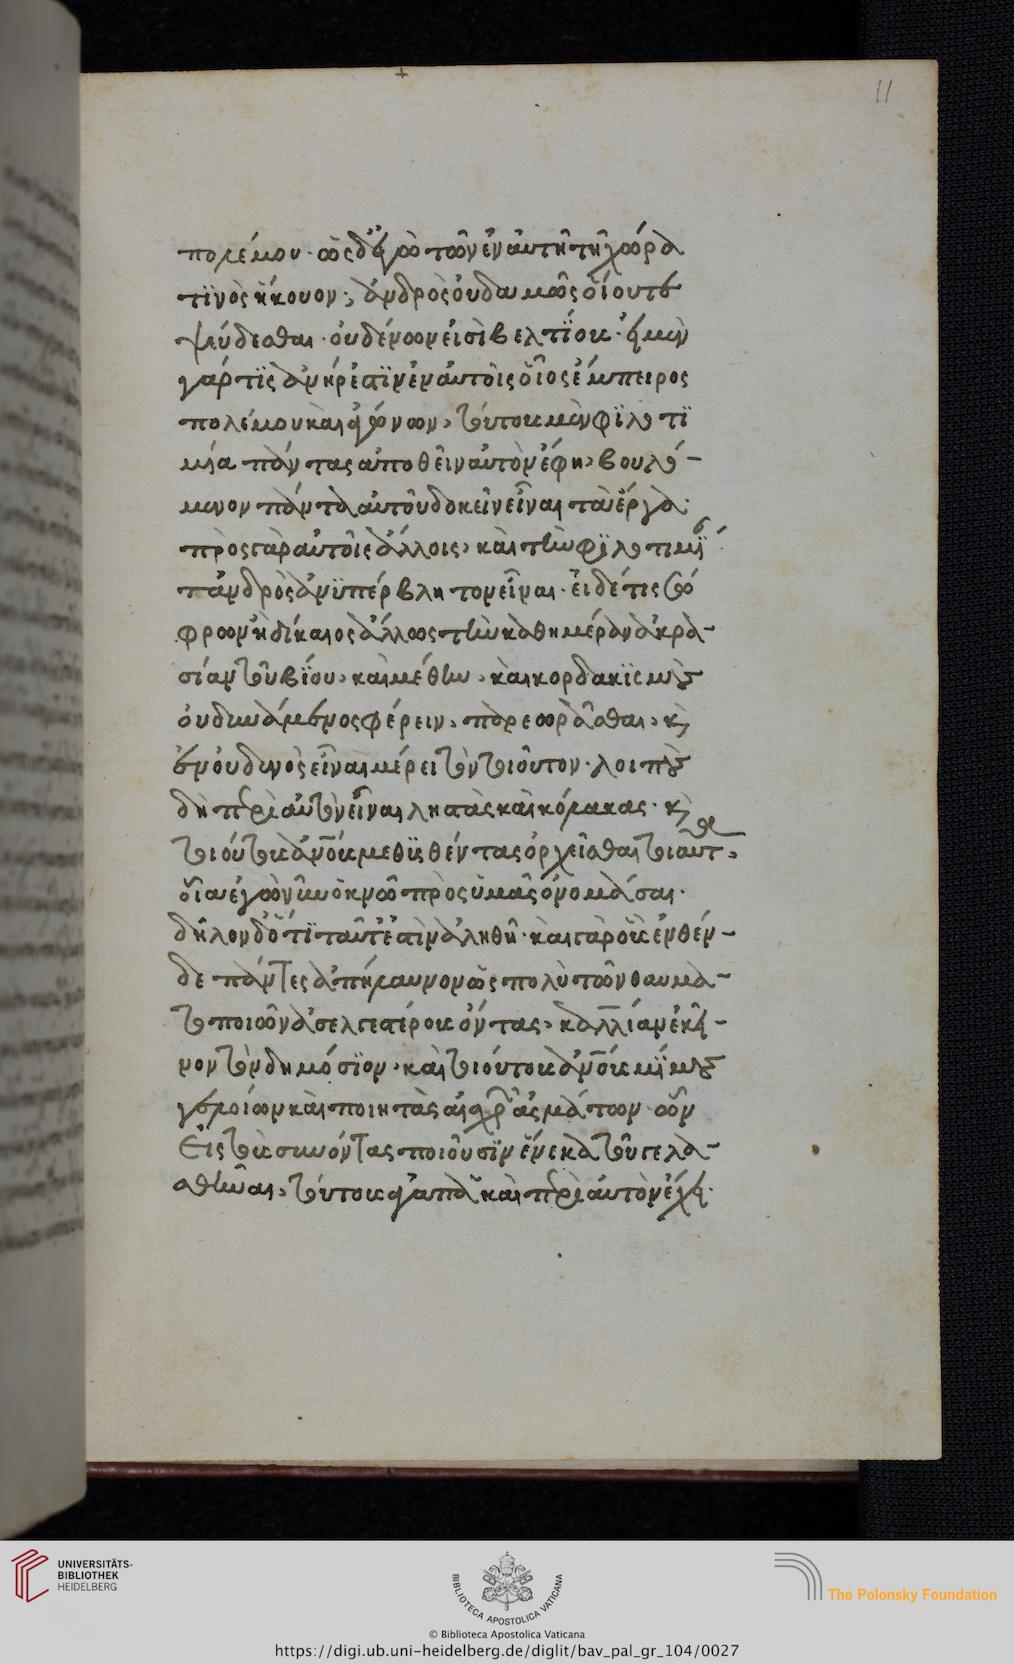 11
πολέμου· ὡς δ' ἐγὼ τῶν ἐν αὐτῇ τῇ χώρᾳ
τϊνὸς ἤκουον· ἀνδρὸς οὐδαμῶς οἵου τε
ψεύδεσθαι· οὐδένων εἰσὶ βελτΐους· εἰ μὲν
γάρ τϊς ἀνήρ ἐστϊν ἐν αὐτοῖς οἷος ἔμπειρος
πολέμου καὶ ἀγώνων, τούτους μὲν φϊλοτϊ
μία πάντας ἀπωθεῖν αὐτὸν ἔφη, βουλό-
μενον πάντα αὐτοῦ δοκεῖν εἶναι τὰ ἔργα·
πρὸς γὰρ αὐτοῖς ἄλλοις, καὶ τὴν φϊλοτιμΐαν
τἀνδρὸς ἀνϋπέρβλητον εἶναι· εἰ δέ τις σώ
φρων ἢ δίκαιος ἄλλως τὴν καθημέραν ἀκρα-
σίαν τοῦ βΐου, καὶ μέθην, καὶ κορδακϊσμοὺς
οὐ δυνάμενος φέρειν, παρεωρᾶσθαι, καὶ
ἐν οὐδενὸς εἶναι μέρει τὸν τοιοῦτον· λοιποὺς
δὴ περὶ αὐτὸν εἶναι λῃστὰς καὶ κόλακας· καὶ
τοιούτους ἀνθρώπους οἵους μεθυσθέντας ὀρχεῖσθαι τοιαῦτα,
οἷα ἐγὼ νῦν ὀκνῶ πρὸς ὑμᾶς ὀνομάσαι·
δῆλον δ' ὅτϊ ταῦτ' ἐστὶν ἀληθῆ· καὶ γὰρ οὓς ἐνθέν-
δε πάντες ἀπήλαυνον ὡς πολὺ τῶν θαυμα-
τοποιῶν ἀσελγεστέρους ὄντας, καλλίαν ἐκεῖ-
νον τὸν δημόσϊον, καὶ τοιούτους ἀνθρώπους μΐμους
γελοίων καὶ ποιητὰς αἰσχρῶν ἀσμάτων· ὧν
εἰς τοὺς συνόντας ποιοῦσϊν ἕνεκα τοῦ γελα-
σθῆναι, τούτους ἀγαπᾷ καὶ περὶ αὐτὸν ἔχει·
UNIVERSITÄTS-
BIBLIOTHEK
HEIDELBERG
BIBLIOTECA APOSTOLICA VATICANA
The Polonsky Foundation
© Biblioteca Apostolica Vaticana
https://digi.ub.uni-heidelberg.de/diglit/bav_pal_gr_104/0027